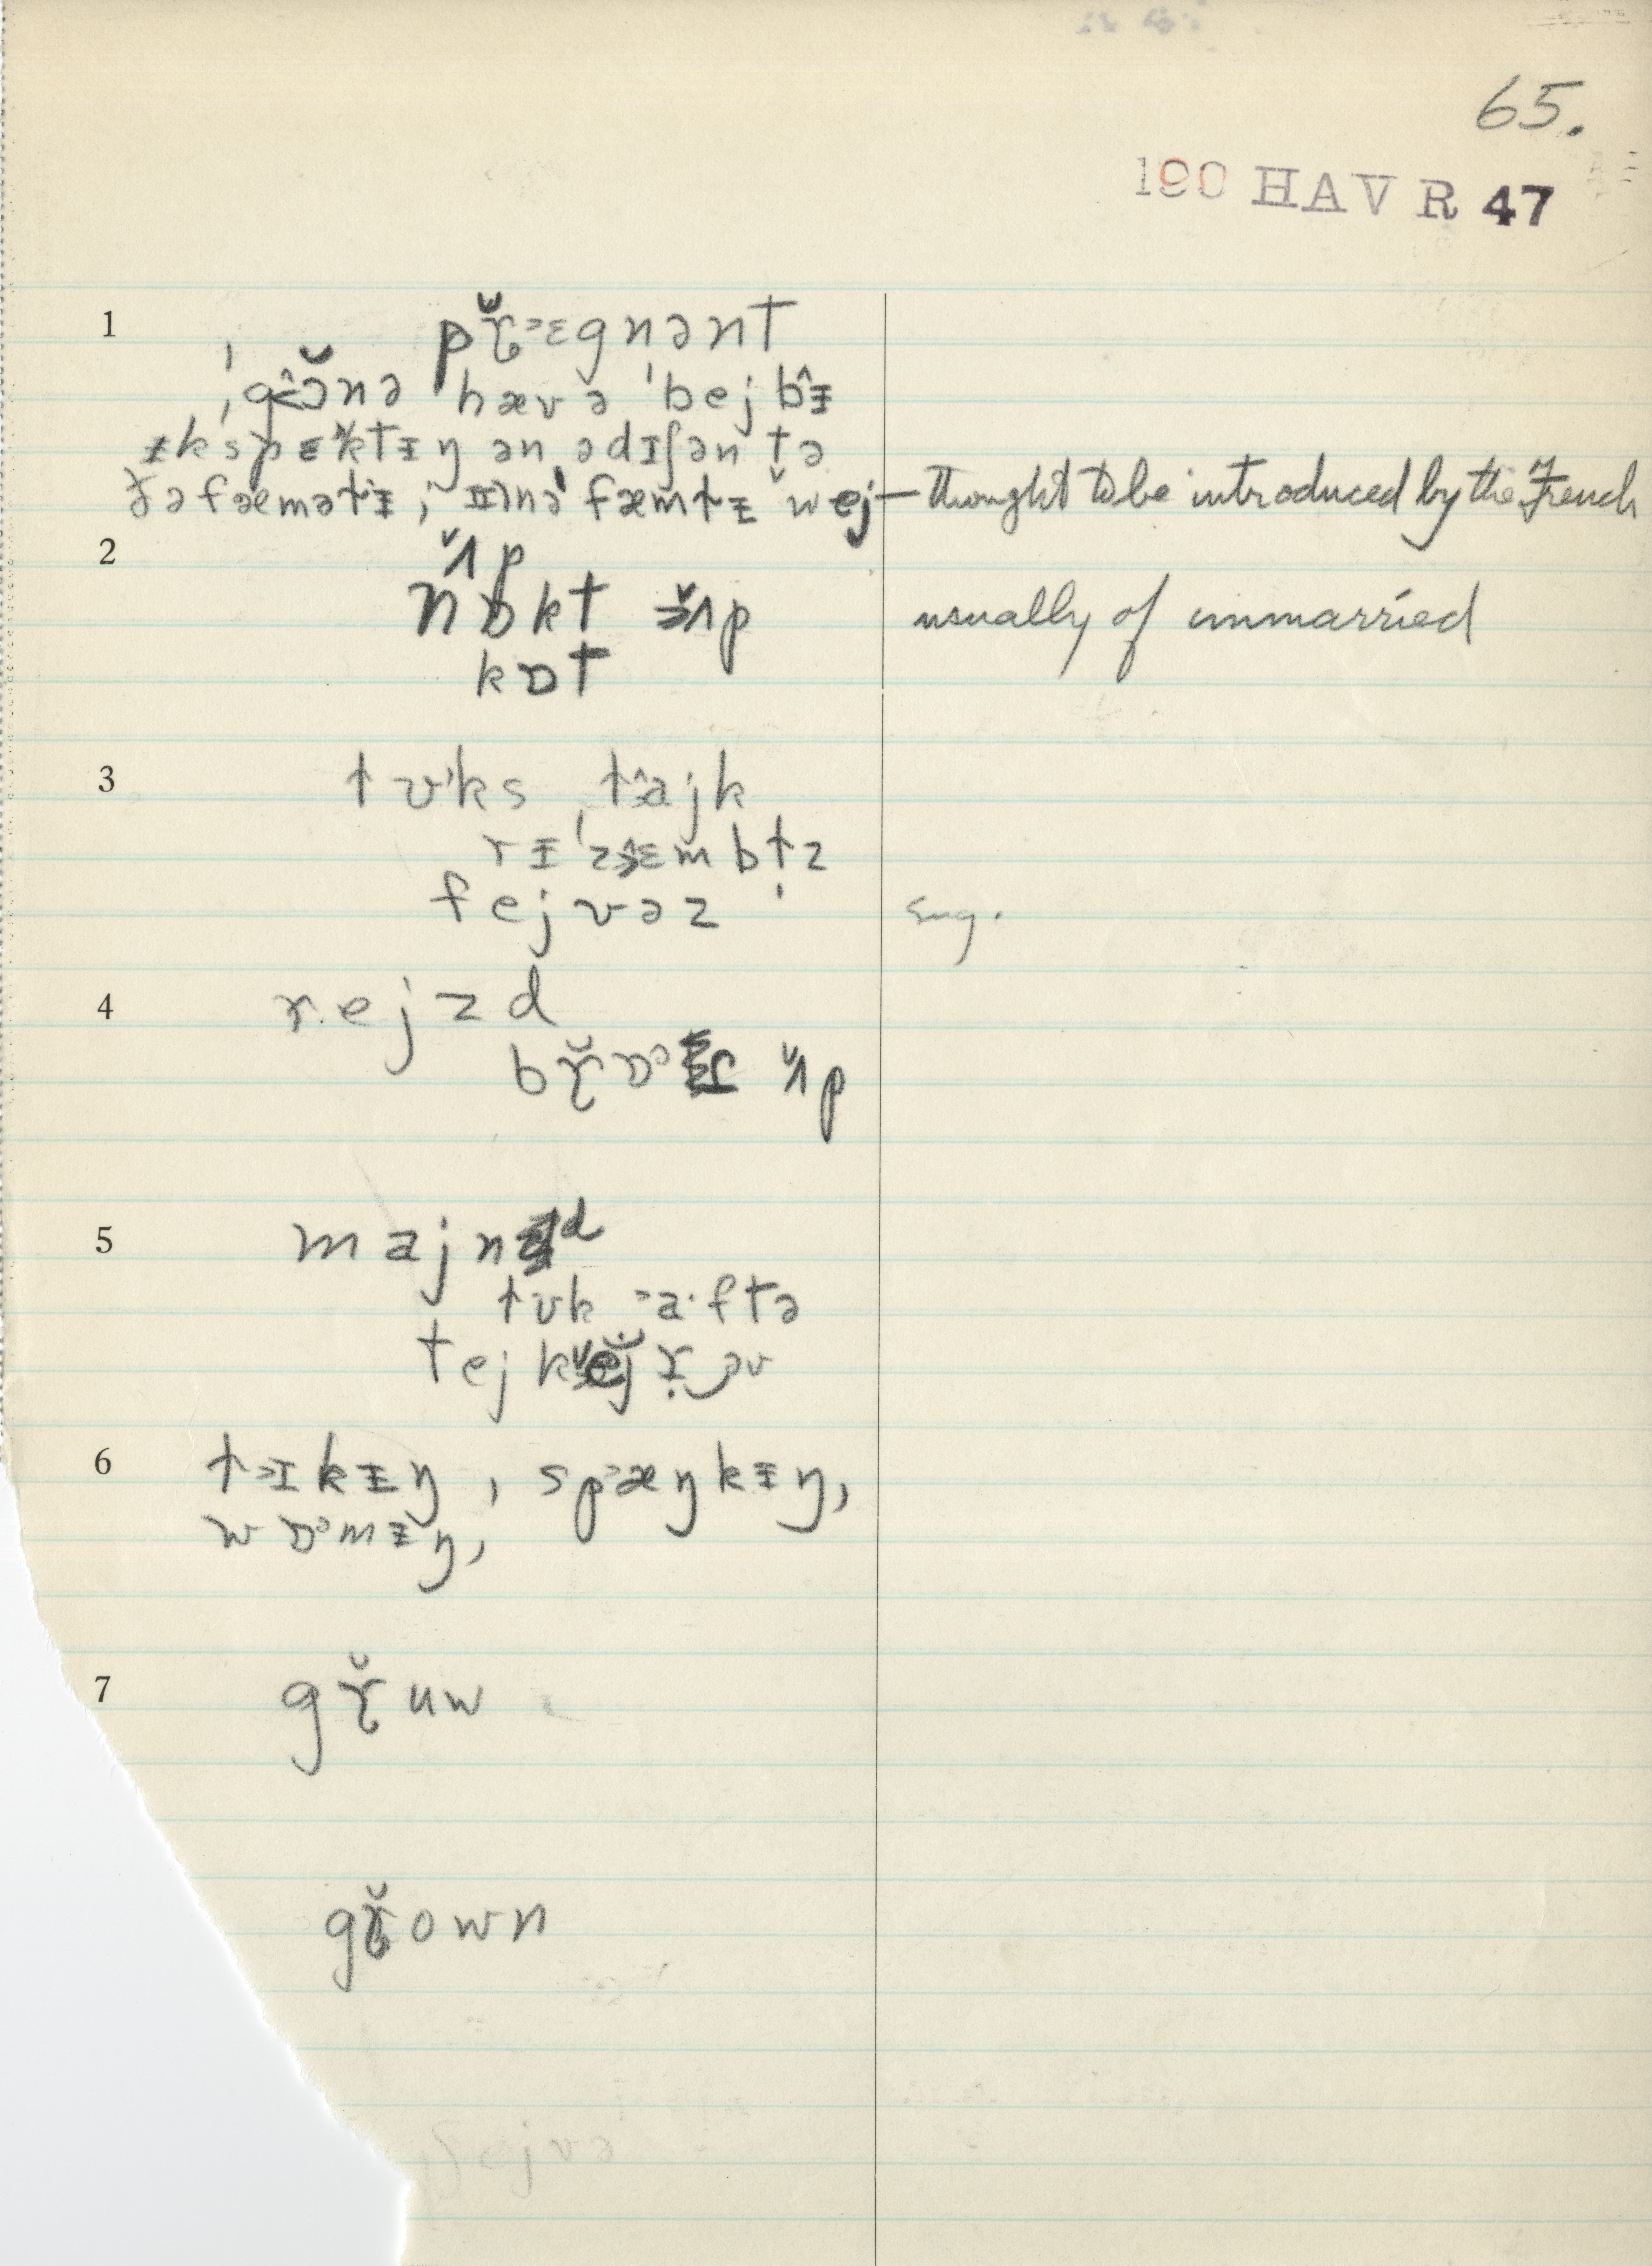 65.
190 HAV R 47
1 pɤ̆ᵊɛgnənt
ˈgɔ̆nə hæv ə ˈbejbᵻ
ᵻkspɛktᵻŋ ən ədɪʃən tə
ðə fæmətᵻ, ɪnə fæmtᵻ wej — thought to be introduced by the French
2 ʌ̆p
nɒkt ʌ̆p usually of unmarried
kɒt
3 tʊks, tajk
rᵻˈzɛmbtz
fejvəz sug.
4 rejzd
bɤ̆ɒᵊt ʌ̆p
5 majnd
tʊk ᵊa·ftə
tejk əv
6 tᵊɪkᵻŋ, spᵊæŋkᵻŋ,
wɒᵊmᵻŋ,
7 gɤ̆uw
gɤ̆own